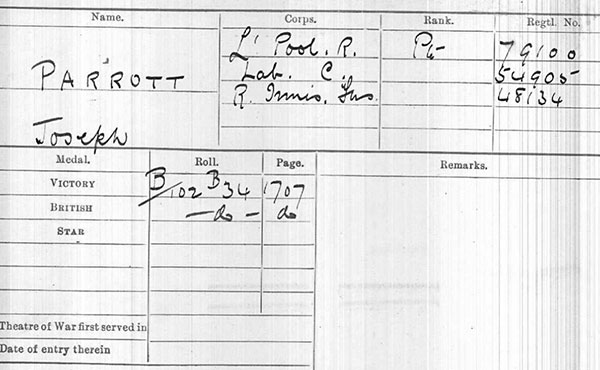 Name. Corps. Rank. Regtl. No.
L'Pool. R. Pte 79100
PARROTT Lab. C. 54905
R. Innis. Fus. 48134
Joseph
Medal. Roll. Page. Remarks.
VICTORY B/102 B34 1707
BRITISH — do — do
STAR
Theatre of War first served in
Date of entry therein